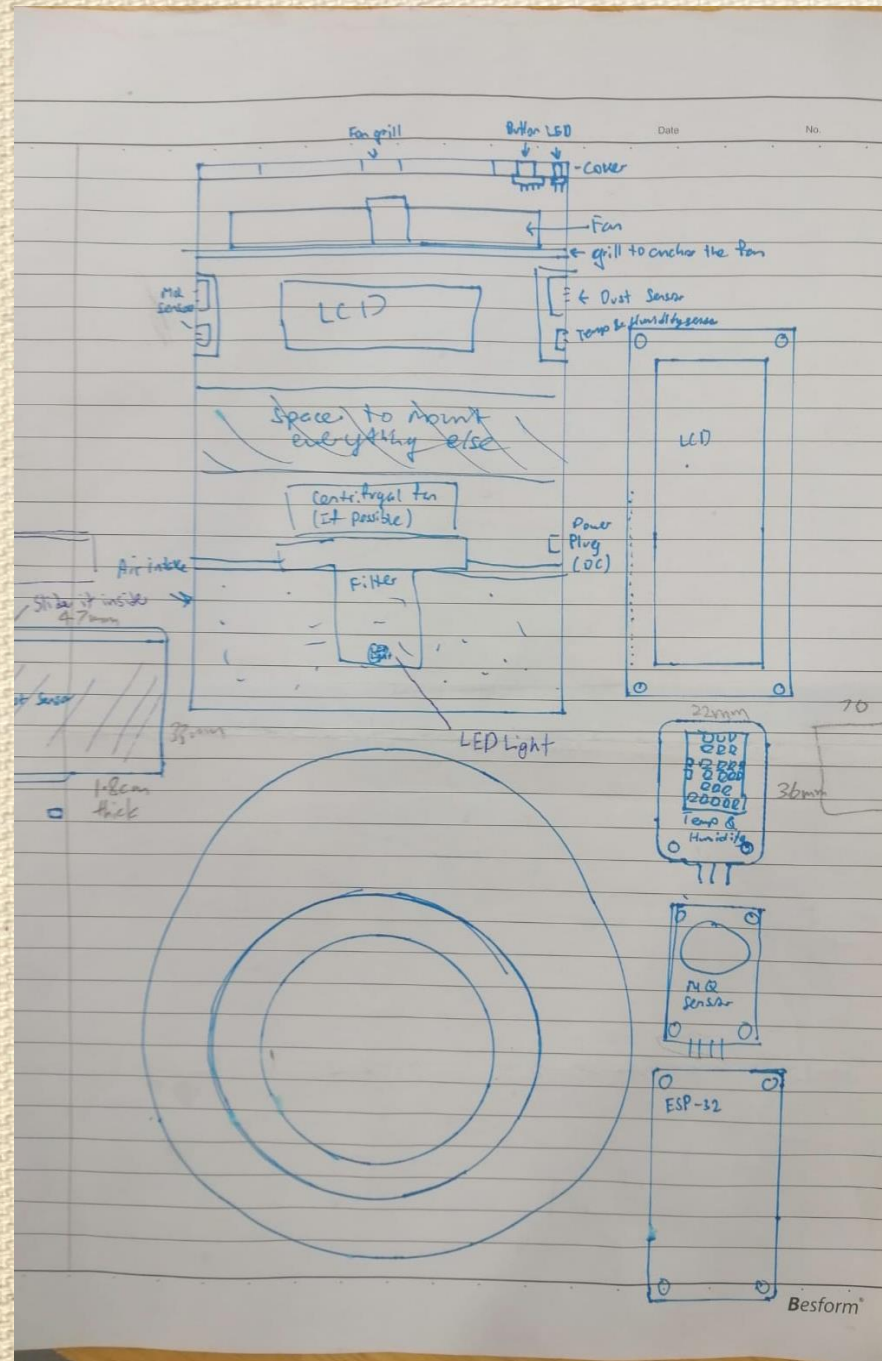 Date
No.
Fan grill
Button LED
-Cover
Fan
grill to anchor the fan
MQ
Sensor
LCD
Dust Sensor
Temp & Humidity sensor
Space to mount
everything else
LCD
Centrifugal fan
(If possible)
Power
Plug
(DC)
Air intake
Filter
Slide it inside
47mm
LED
Light
Sensor
33mm
LED Light
1.8cm
thick
22mm
70
36mm
Temp &
Humidity
MQ
Sensor
ESP-32
Besform